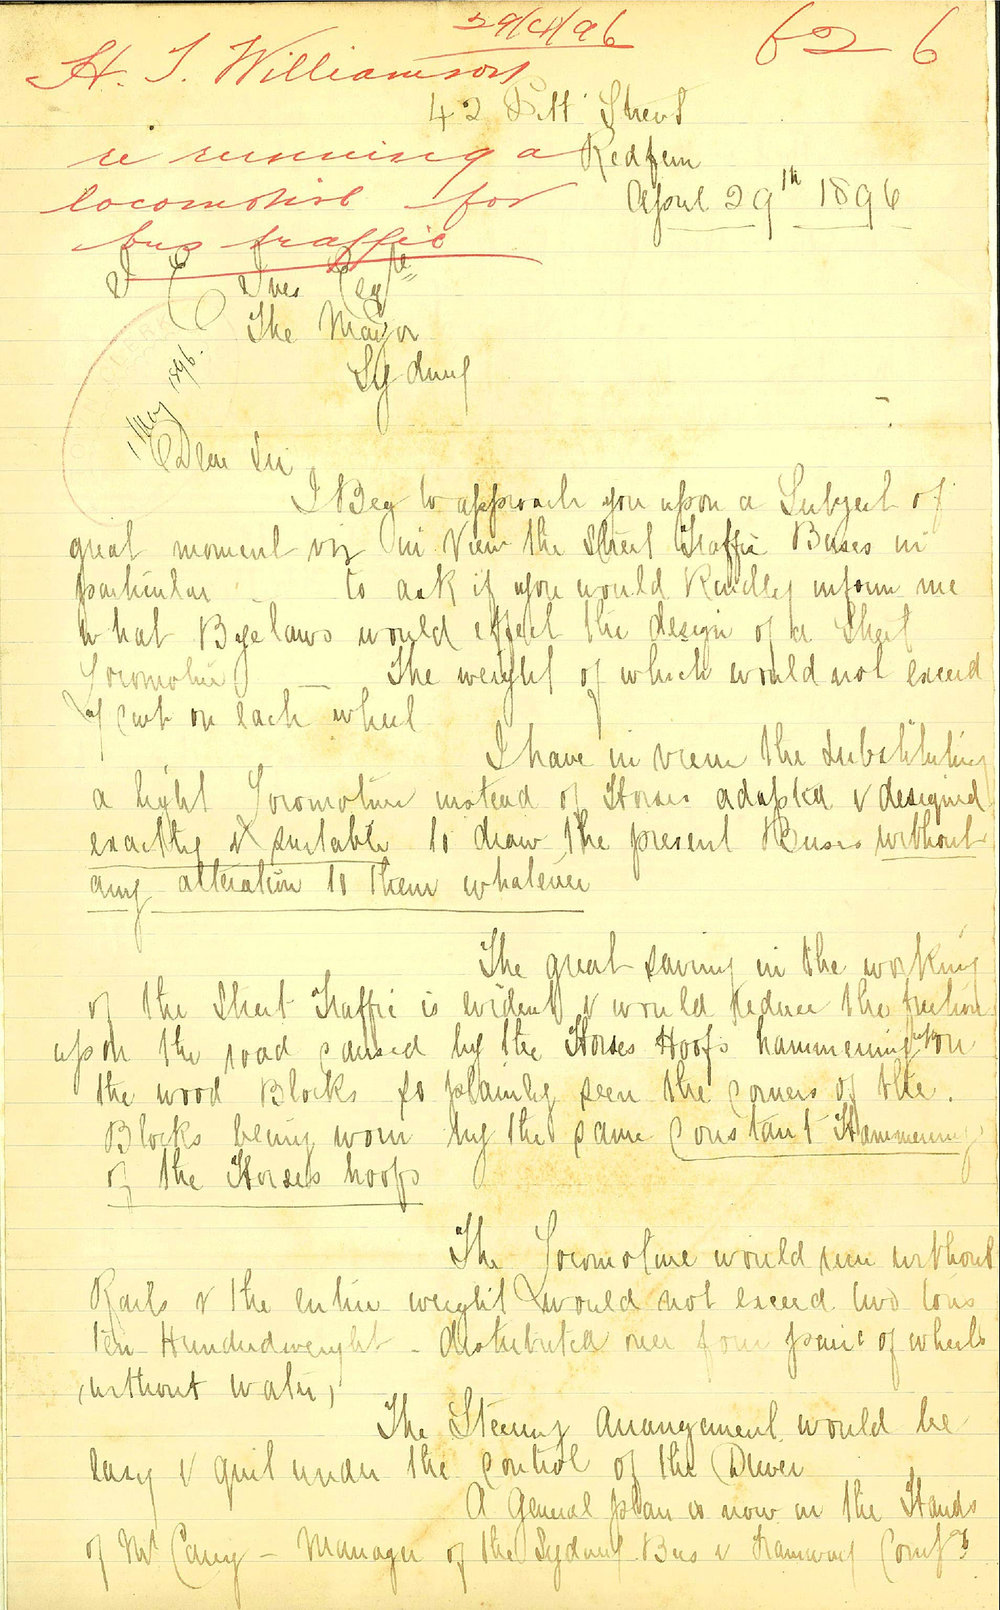 29/4/96
626
H. T. Williamson
42 Pitt Street
re running a
Redfern
locomotive for
April 29th 1896
bus traffic
I C Ives Esqre
The Mayor
Sydney
1 May 1896.
Dear Sir
I Beg to approach you upon a Subject of
great moment viz in View the Street Traffic Buses in
particular to ask if you would Kindly inform me
what Byelaws would effect the design of a Street
Locomotive - The weight of which would not exceed
cwt on each wheel
I have in view the substituting
a light Locomotive instead of Horses adapted & designed
exactly & suitable to draw the present Buses without
any alteration to them whatever
The great saving in the working
of the Street Traffic is evident & would reduce the friction
upon the road caused by the Horses Hoofs hammering on
the wood Blocks so plainly seen the corners of the.
Blocks being worn by the same Constant Hammering
of the Horses hoofs
The Locomotive would run without
Rails & the entire weight would not exceed two tons
ten Hundredweight - distributed over four pairs of wheels
(without water)
The Steering Arrangement would be
easy & quit under the control of the Driver
A General plan is now in the Hands
of Mr Carey - Manager of the Sydney Bus & Tramway Compy